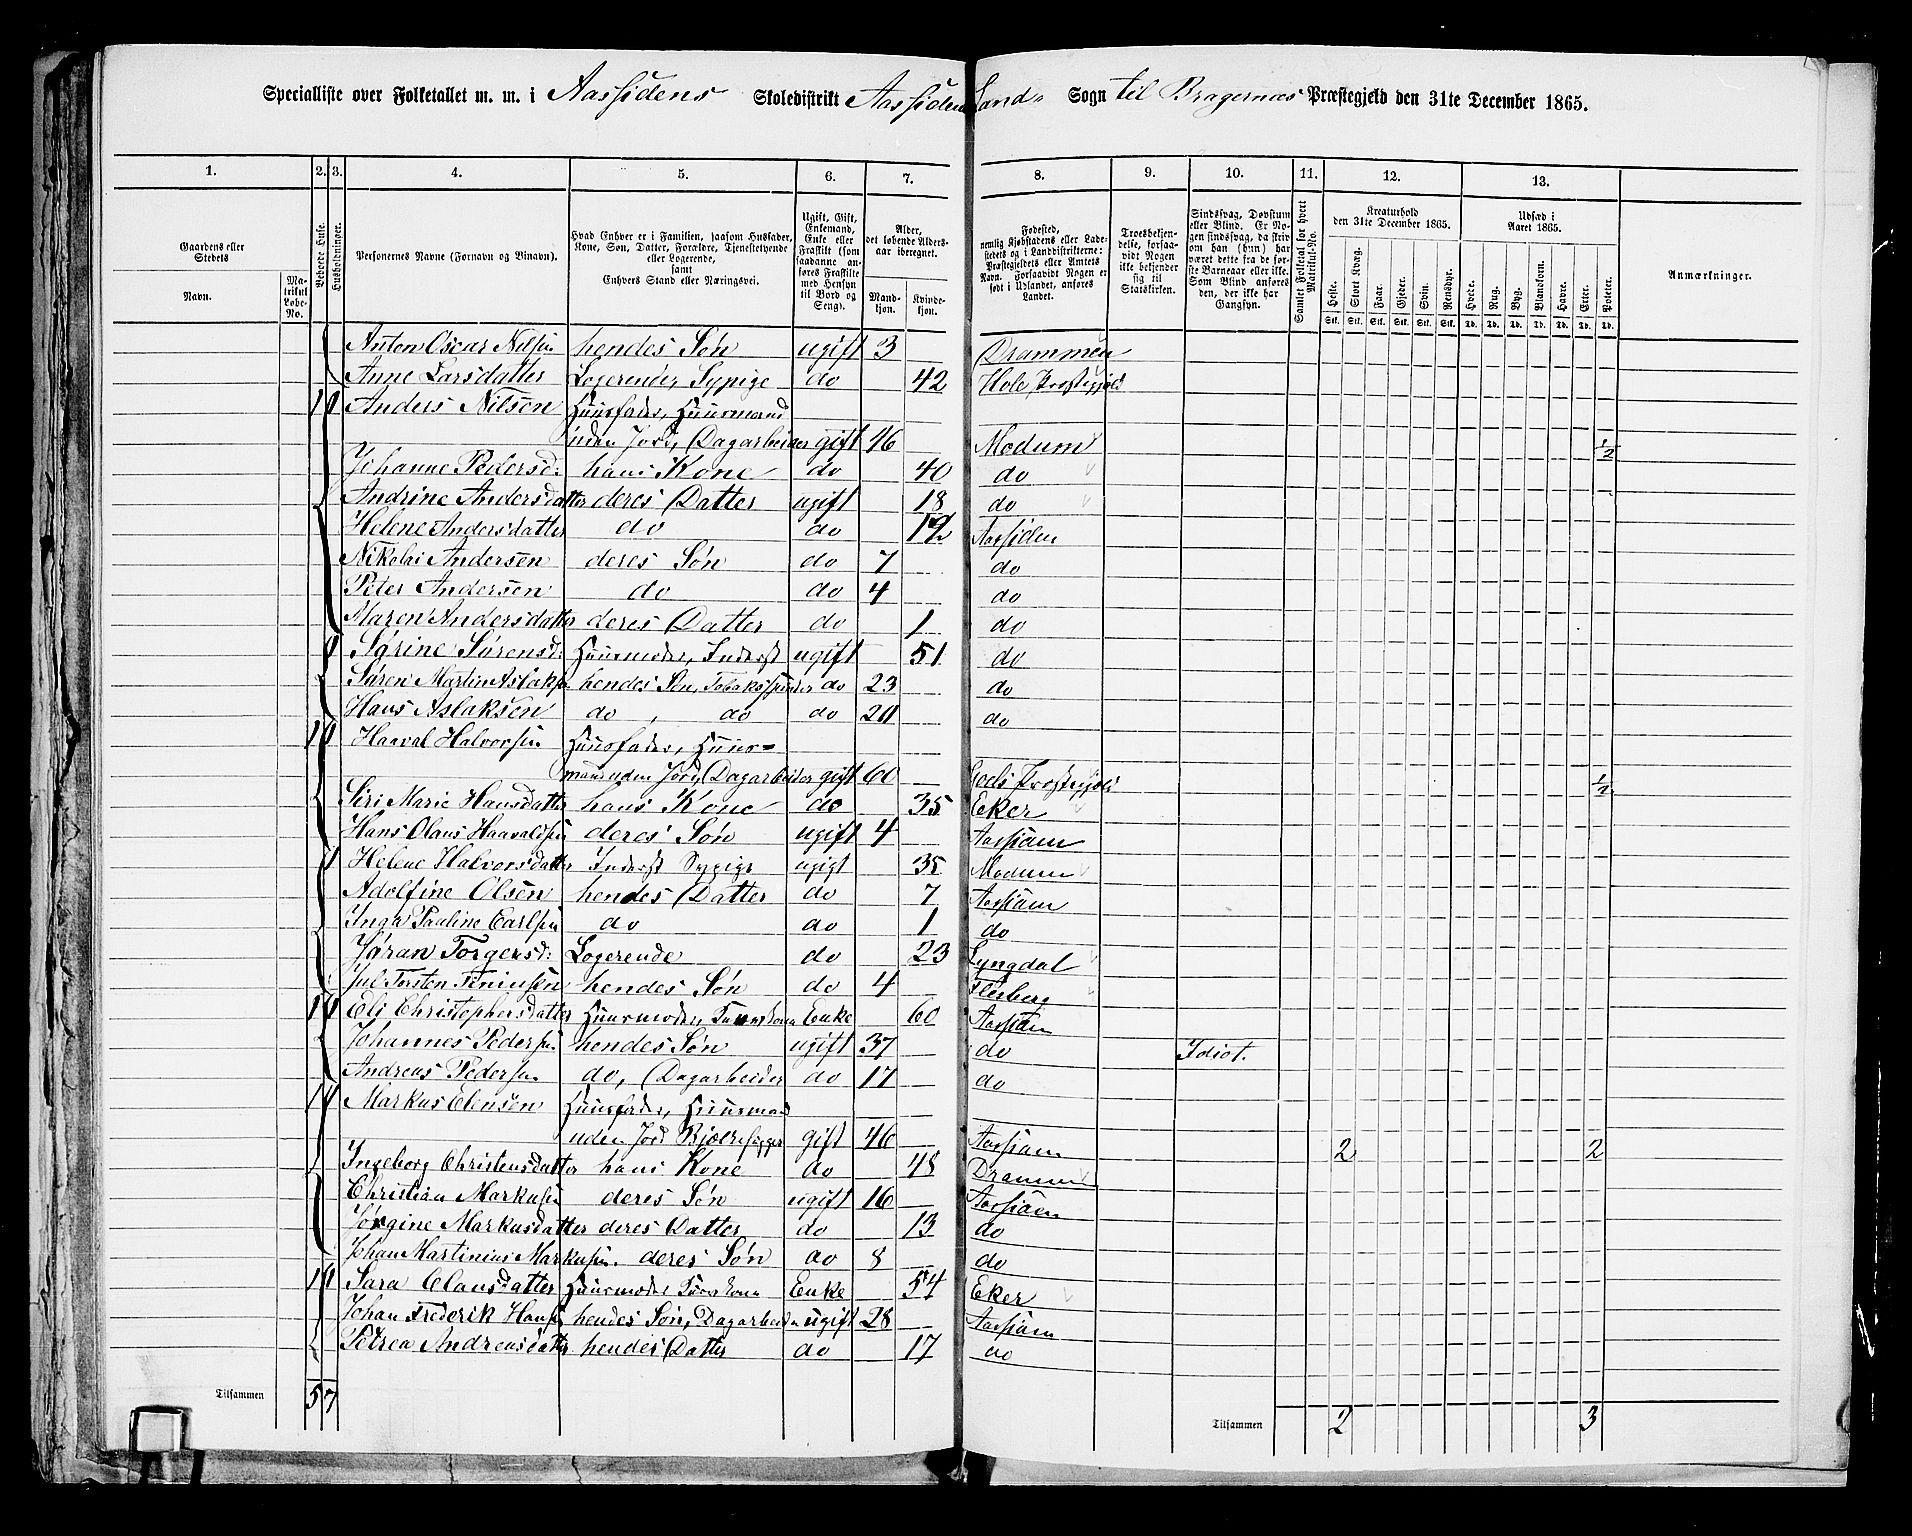 Specialliste over Folketallet m. m. i Aassidens Skoledistrikt Aassidens Land- Sogn til Bragernæs Præstegjeld den 31te December 1865.
1. 2. 3. 4. 5. 6. 7. 8. 9. 10. 11. 12. 13.
Gaardens eller Stedets
Navn.
Matrikul Løbe-No.
Beboede Huse.
Husholdninger.
Personernes Navne (Fornavn og Tilnavn).
Hvad Enhver er i Familien, saasom Husfader, Kone, Søn, Datter, Forældre, Tjenestetyende eller Logerende, samt Enhvers Stand eller Næringsvei.
Ugift, Gift, Enkemand, Enke eller Fraskilt (som saadanne anføres Fraskilte med Hensyn til Bord og Seng).
Alder, det løbende Aldersaar iberegnet.
Mandkjøn. Kvindekjøn.
Fødested, nemlig Kjøbstadens eller Ladestedets og i Landdistrikterne: Præstegjeldets eller Amtets Navn. Forsaavidt Nogen er født i Udlandet, anføres Landet.
Troesbekjendelse, forsaavidt Nogen ikke bekjender sig til Statskirken.
Sindssvag, Døvstum eller Blind. Er Nogen sindssvag, da skriv om han (hun) har været dette fra de første Barneaar eller ikke. Som Blind anføres den, der ikke har Gangsyn.
Samlet Folketal for hvert Matrikul-No.
Kreaturhold den 31te December 1865.
Heste. Stort Kvæg. Faar. Gjeder. Svin. Rensdyr.
Stk. Stk. Stk. Stk. Stk. Stk.
Udsæd i Aaret 1865.
Hvede. Rug. Byg. Blandkorn. Havre. Erter. Poteter.
Td. Td. Td. Td. Td. Td. Td.
Anmærkninger.
Anton Oscar Nilsen hendes Søn ugift 3 Drammen
Anne Larsdatter Logerende, Sypige do 42 Hole Præstegjeld
1 1 Anders Nilsen Huusfader, Huusmand
uden Jord, Dagarbeider gift 46 Modum 1/2
Johanne Pedersd: hans Kone do 40 do
Andrine Andersdatter deres Datter ugift 18 do
Helene Andersdatter do do 12 Aassiden
Nikolai Andersen deres Søn do 7 do
Peter Andersen do do 4 do
Maren Andersdatter deres Datter do 1 do
1 Sørine Sørensd: Huusmoder, Inderst ugift 51 do
Søren Martin Aslaksen hendes Søn, Tobaksspinder do 23 do
Hans Aslaksen do, do do 20 do
1 1 Haaval Halvorsen Huusfader, Huus-
mand uden Jord, Dagarbeider gift 60 Præstegjeld 1/2
Siri Marie Hansdatter hans Kone do 35 Eker
Hans Olaus Haavaldsen deres Søn ugift 4 Aassiden
1 Helene Halvorsdatter Inderst Sypige ugift 35 Modum
Adolfine Olsen hendes Datter do 7 Aassiden
Inga Pauline Carlsen do do 1 do
Jøran Torgersd: Logerende do 23 Lyngdal
Jul Torsten hendes Søn do 4 Flesberg
1 1 Eli Christophersdatter Huusmoder, Enke 60 Aassiden
Johannes Pedersen hendes Søn ugift 37 do Idiot.
Andreas Pedersen do, Dagarbeider do 17 do
1 1 Markus Clensen Huusfader, Huusmand
uden Jord gift 46 Aassiden 2 2
Ingeborg Christensdatter hans Kone do 48 Drammen
Christian Markusen deres Søn ugift 16 Aassiden
Jørgine Markusdatter deres Datter do 13 do
Johan Martinius Markusen. deres Søn do 8 do
1 1 Sara Clausdatter Huusmoder Enke 54 Eker
Johan Frederik Hansen hendes Søn, Dagarbeider ugift 28 Aassiden
Petrea Andreasdatter hendes Datter do 17 do
Tilsammen 5 7
Tilsammen 2 3